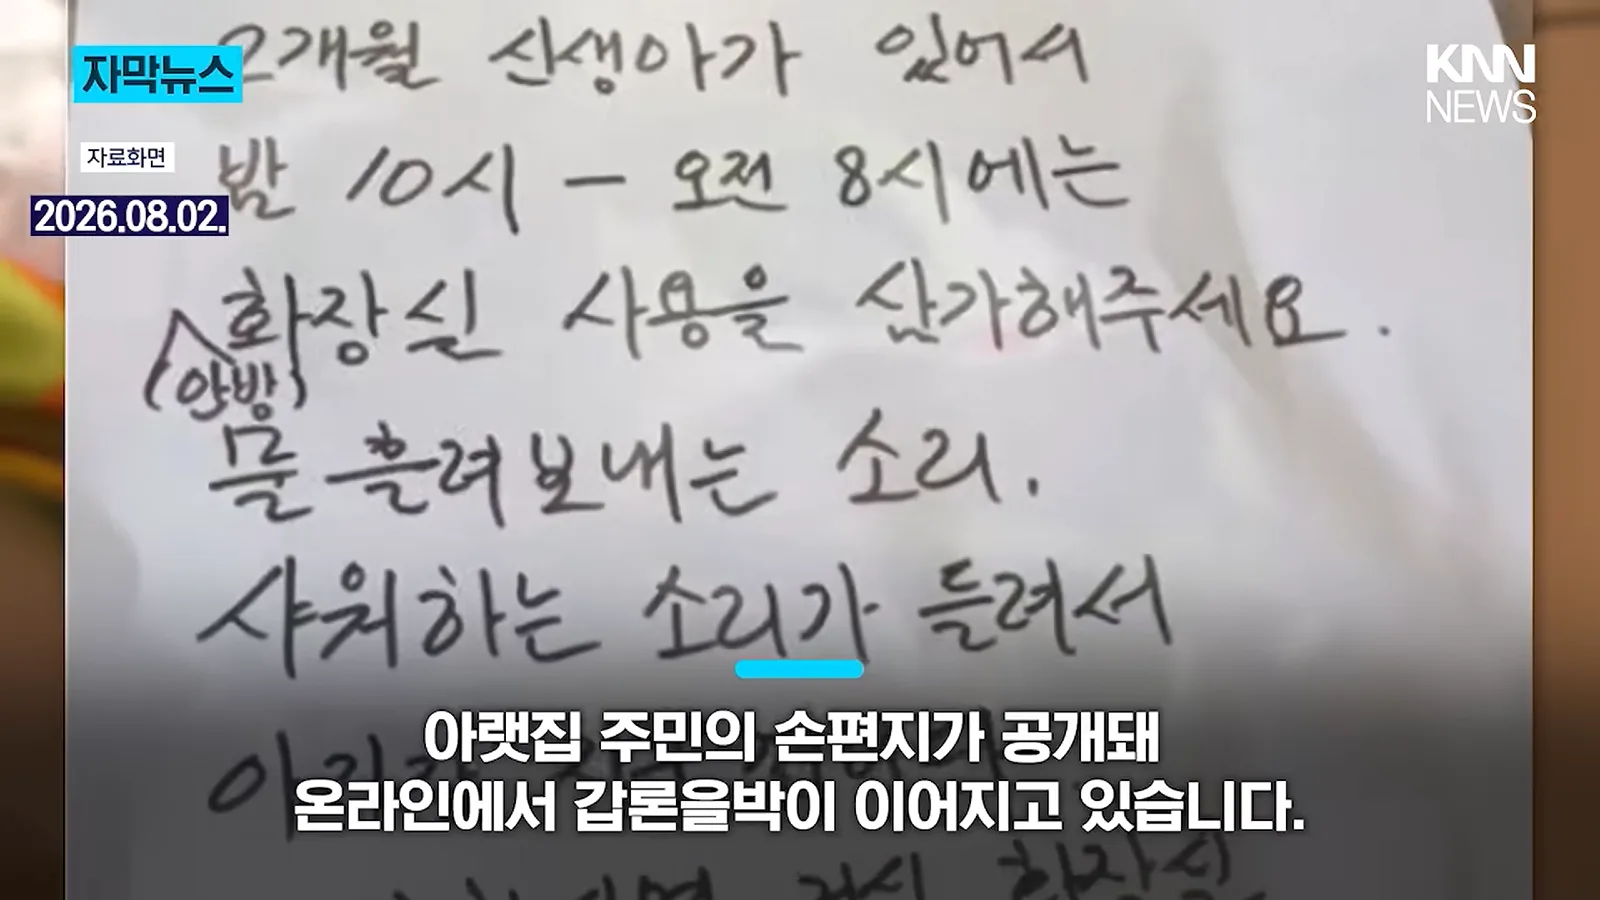 자막뉴스
KNN
NEWS
자료화면
2026.08.02.
2개월 신생아가 있어서
밤 10시 - 오전 8시에는
화장실 사용을 삼가해주세요.
(안방)
물 흘려보내는 소리.
샤워하는 소리가 들려서
아랫집 주민의 손편지가 공개돼
온라인에서 갑론을박이 이어지고 있습니다.
화장실